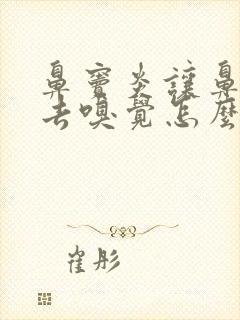 鼻竇炎讓鼻
去嗅覺怎麼
崔彤